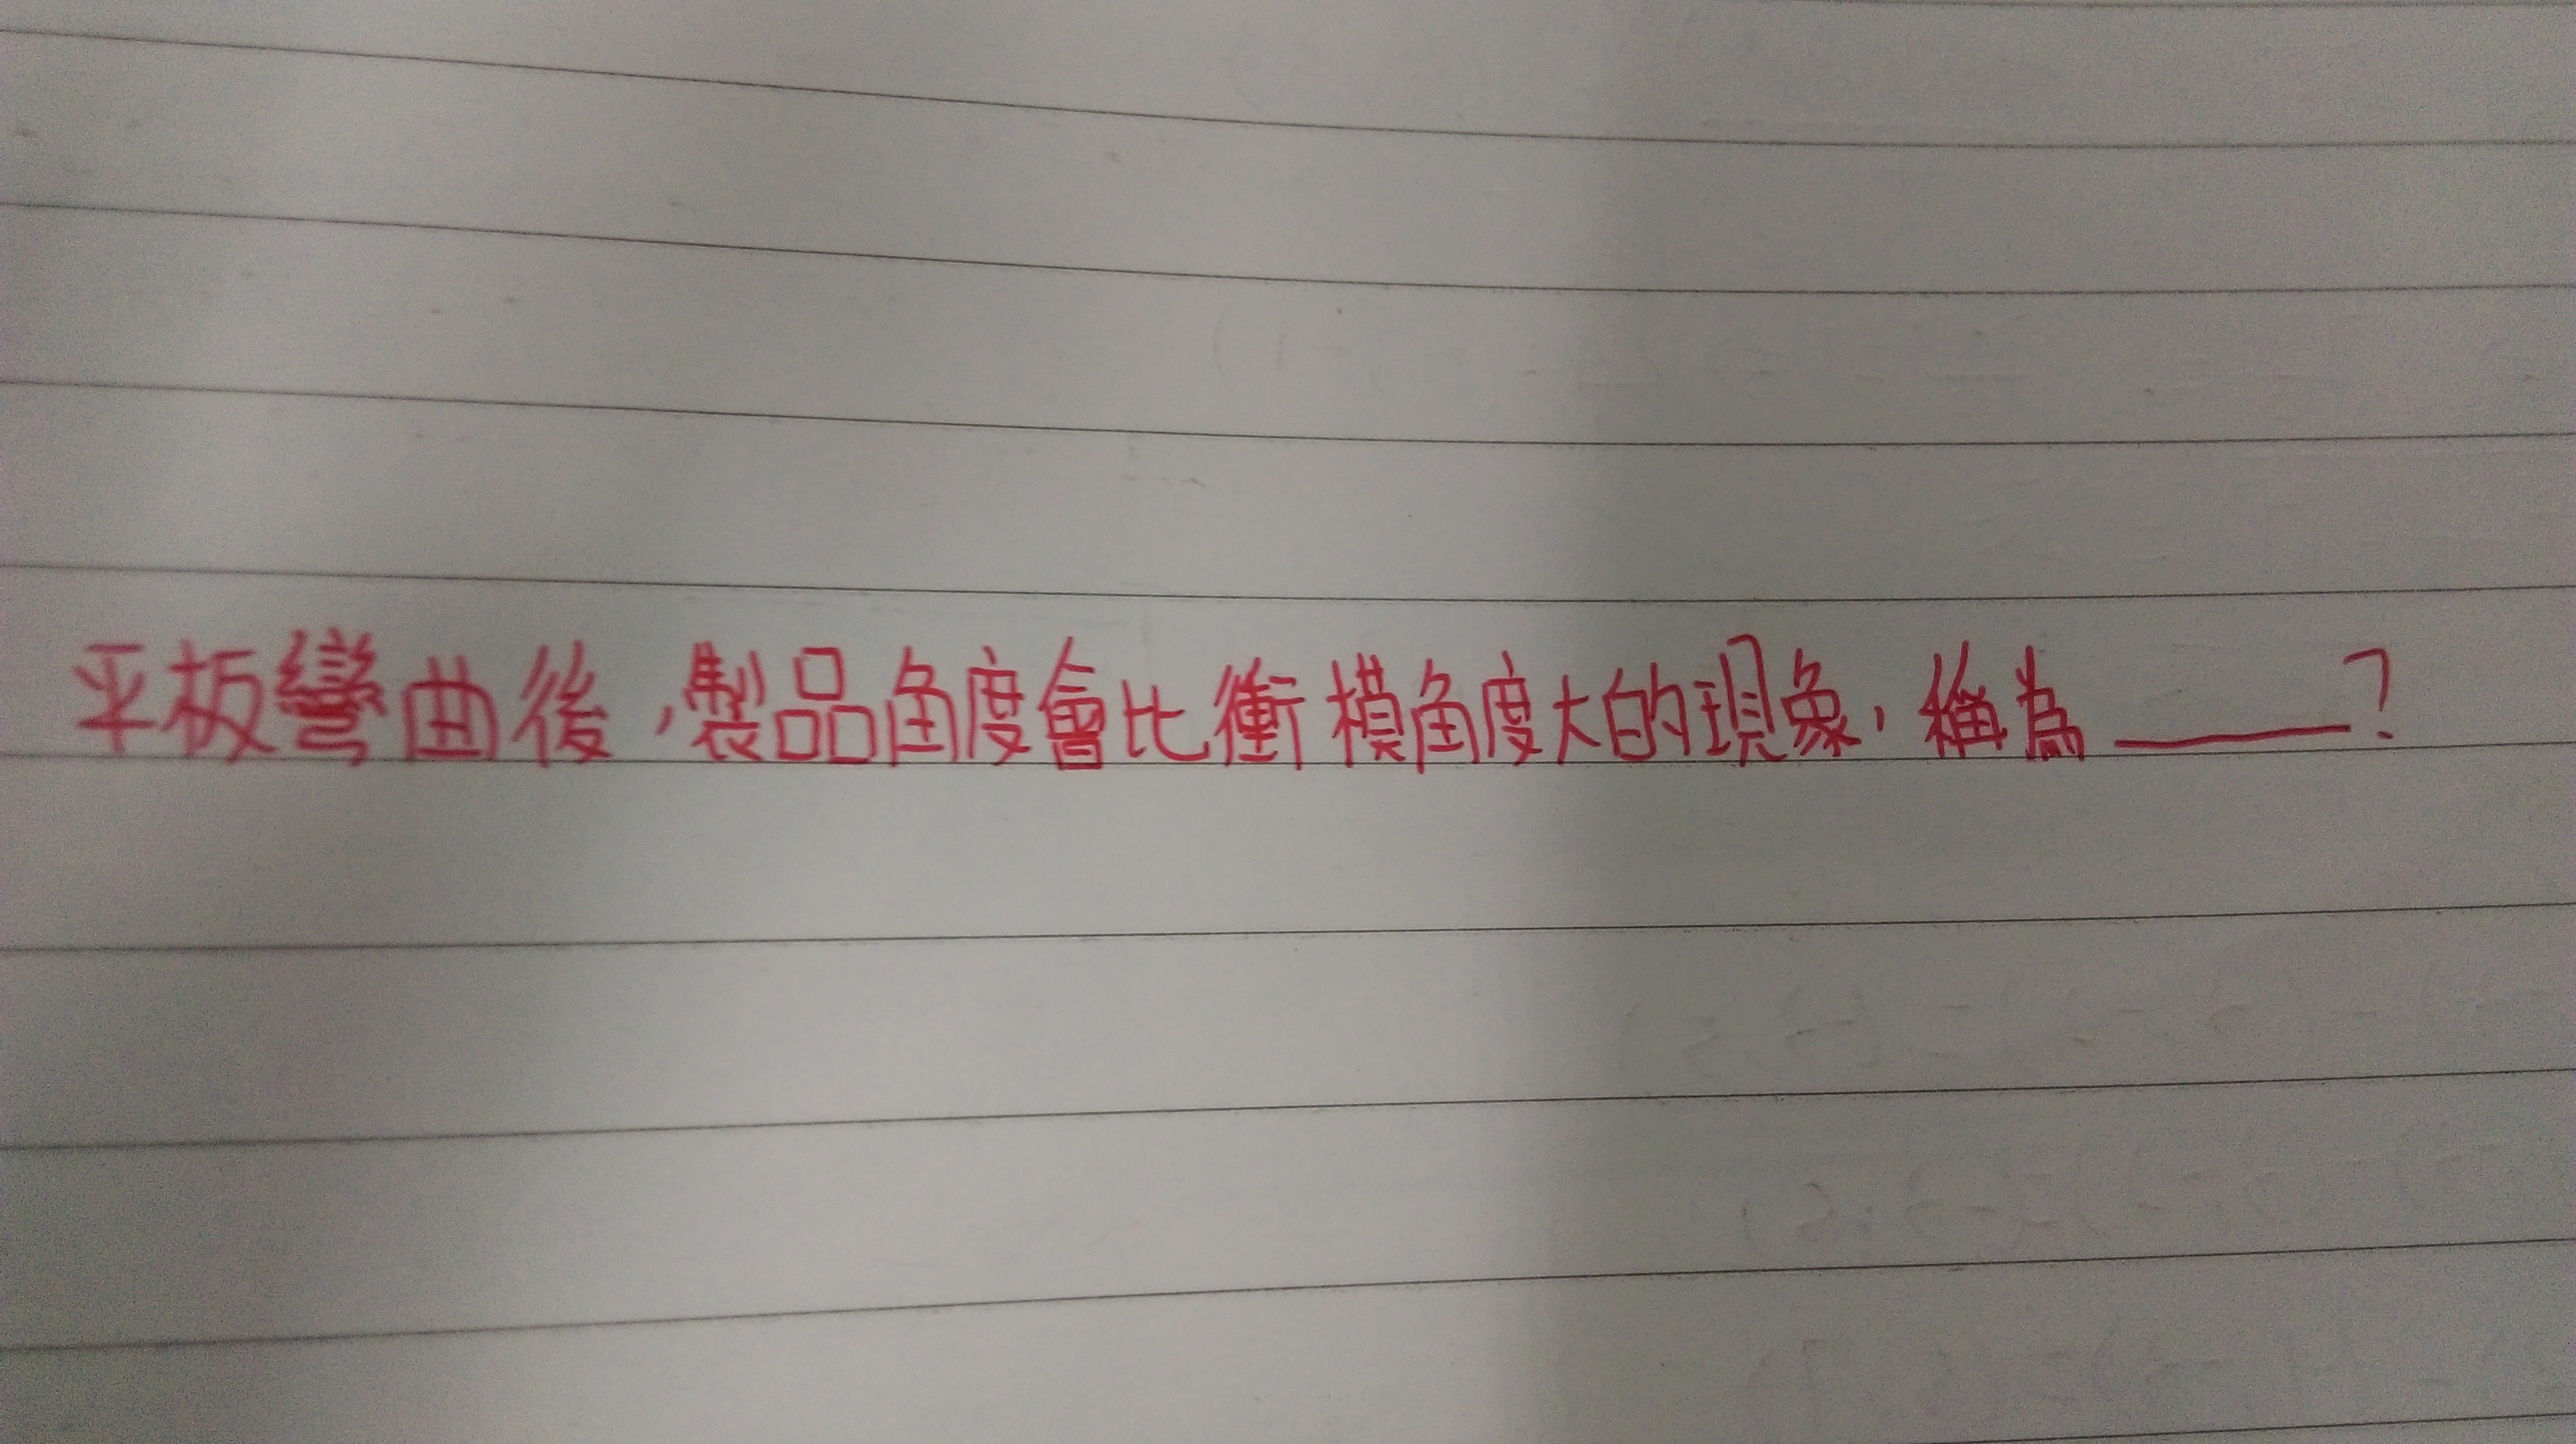 平板彎曲後，製品角度會比衝模角度大的現象，稱為____？